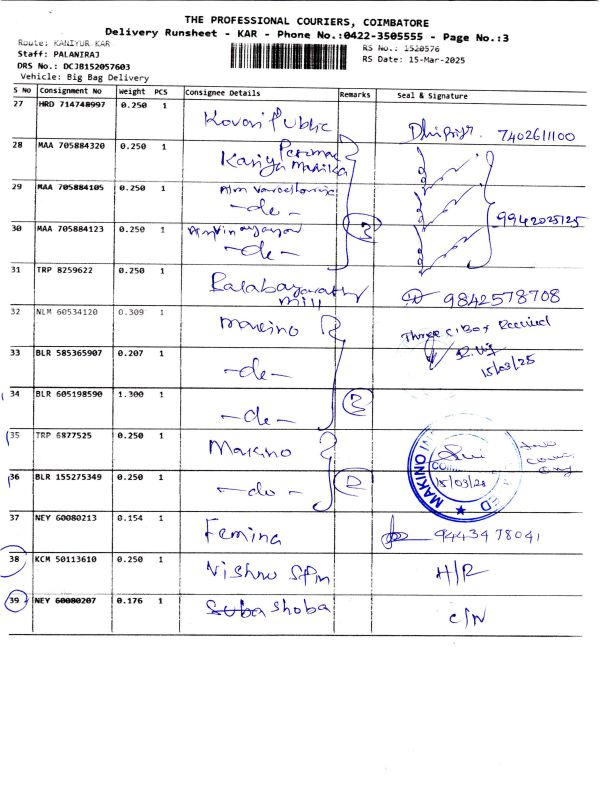 THE PROFESSIONAL COURIERS, COIMBATORE
Delivery Runsheet - KAR - Phone No.:0422-3505555 - Page No.:3
Route: KANIYUR KAR
Staff: PALANIRAJ
DRS No.: DCJB152057603
Vehicle: Big Bag Delivery
RS No.: 1520576
RS Date: 15-Mar-2025
S No Consignment No Weight PCS Consignee Details Remarks Seal & Signature
27 HRD 714748997 0.250 1 Kovai Public 7402611100
28 MAA 705884320 0.250 1
29 MAA 705884105 0.250 1 -do-
3 9942025125
30 MAA 705884123 0.250 1 -do-
31 TRP 8259622 0.250 1 Mill 9842578708
32 NLM 60534120 0.309 1 Makino Three c/Box Received
33 BLR 585365907 0.207 1 -do- 15/03/25
34 BLR 605198590 1.300 1 -do- 3
35 TRP 6877525 0.250 1 Makino
36 BLR 155275349 0.250 1 -do- 2 15/03/25
MAKINO
37 NEY 60080213 0.154 1 Femina 9443478041
38 KCM 50113610 0.250 1 Vishnu Spin H/R
39 NEY 60080207 0.176 1 Suba Shoba C/N